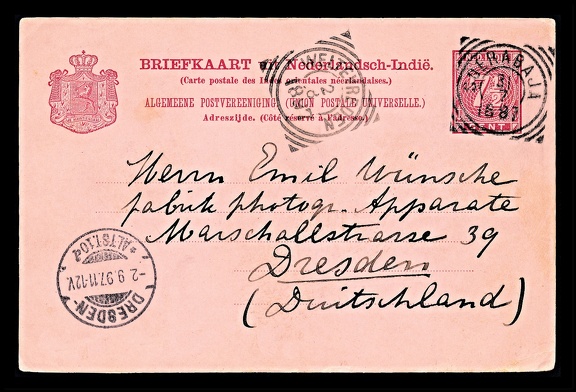 BRIEFKAART uit Nederlandsch-Indië.
(Carte postale des Indes orientales néerlandaises.)
ALGEMEENE POSTVEREENIGING. (UNION POSTALE UNIVERSELLE.)
Adreszijde. (Côté réservé à l'adresse.)
SOERABAJA
7½
CENT
WELTEVREDEN
Herrn Emil Wünsche
fabrik photogr. Apparate
Marschallstrasse 39
Dresden
(Duitschland)
DRESDEN-
ALTST.10
-2.9.97.11-12V.